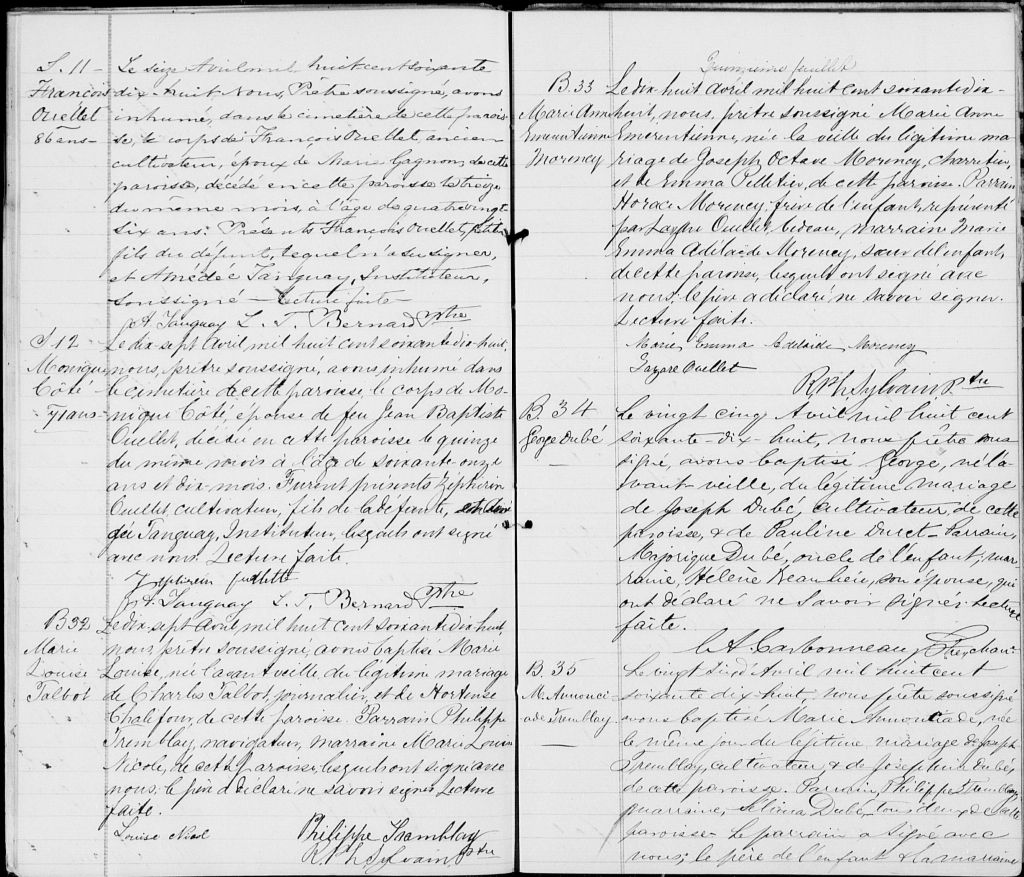 S. 11 -
François
Ouellet
86 ans -
Le seize Avril mil huit cent soixante
dix-huit Nous, Prêtre soussigné, avons
inhumé, dans le cimetière de cette parois
se, le corps de François Ouellet, ancien
cultivateur, époux de Marie Gagnon, de cette
paroisse, décédé en cette paroisse le treize
du même mois, à l'âge de quatre vingt
six ans: Présents François Ouellet, petit
fils du défunt, lequel n'a su signer,
et Amédée Tanguay, Instituteur,
soussigné - Lecture faite -
J A. Tanguay L. T. Bernard Ptre
S 12
Monique
Côté
71 ans -
Le dix-sept Avril, mil huit cent soixante dix huit,
nous, prêtre soussigné, avons inhumé dans
le cimetière de cette paroisse, le corps de Mo-
nique Côté, épouse de feu Jean Baptiste
Ouellet, décédée en cette paroisse le quinze
du même mois à l'âge de soixante-onze
ans et dix-mois. Furent présents Zépherin
Ouellet cultivateur, fils de la défunte,
dée Tanguay, Instituteur, lesquels ont signé
avec nous. Lecture faite.
Zepherin
J A. Tanguay L. T. Bernard Ptre
B 32
Marie
Louise
Talbot
Le dix sept Avril, mil huit cent soixante dix huit,
nous, prêtre soussigné, avons baptisé Marie
Louise, née l'avant veille, du légitime mariage
de Charles Talbot, journalier, et de Hortense
Chalifour, de cette paroisse. Parrain Philippe
Tremblay, navigateur, marraine Marie Louise
Nicole, de cette paroisse, lesquels ont signé avec
nous; le père a déclaré ne savoir signer Lecture
faite.
Louise Nicol
Philippe Tremblay
R Ph Sylvain Ptre
juillet
B. 33
Marie Anne
Emerentienne
Morency
Le dix huit Avril mil huit cent soixante dix-
huit, nous, prêtre soussigné Marie Anne
Emerentienne, née la veille du légitime ma
riage de Joseph Octave Morency, charretier,
et de Emma Pelletier, de cette paroisse. Parrain
Horace Morency, frère de l'enfant, représenté
par Lazare Ouellet, bedeau, marraine Marie
Emma Adélaide Morency, sœur de l'enfant,
de cette paroisse, lesquels ont signé avec
nous; le père a déclaré ne savoir signer.
Lecture faite.
Marie Emma Adelaide Morency
Lazare Ouellet
R Ph Sylvain Ptre
B. 34
George Dubé
Le vingt cinq Avril mil huit cent
soixante-dix-huit, nous prêtre sous
signé, avons baptisé George, né l'a-
vant-veille, du légitime mariage
de Joseph Dubé, cultivateur, de cette
paroisse, & de Pauline Duret - Parrain,
Majorique Dubé, oncle de l'enfant; mar-
raine, Hélène Beaulieu, son épouse, qui
ont déclaré ne savoir signer. Lecture
faite.
C A. Carbonneau
B. 35
M. Annonci
ade Tremblay
Le vingt Avril mil huit cent
soixante dix-huit, nous prêtre soussigné
avons baptisé Marie Annonciade, née
le même jour du légitime mariage de Joseph
Tremblay, cultivateur & de Josephine Dubé,
de cette paroisse. Parrain, Philippe Tremblay,
marraine, Dubé, tous deux de cette
paroisse - Le parrain a signé avec
nous; le père de l'enfant & la marraine